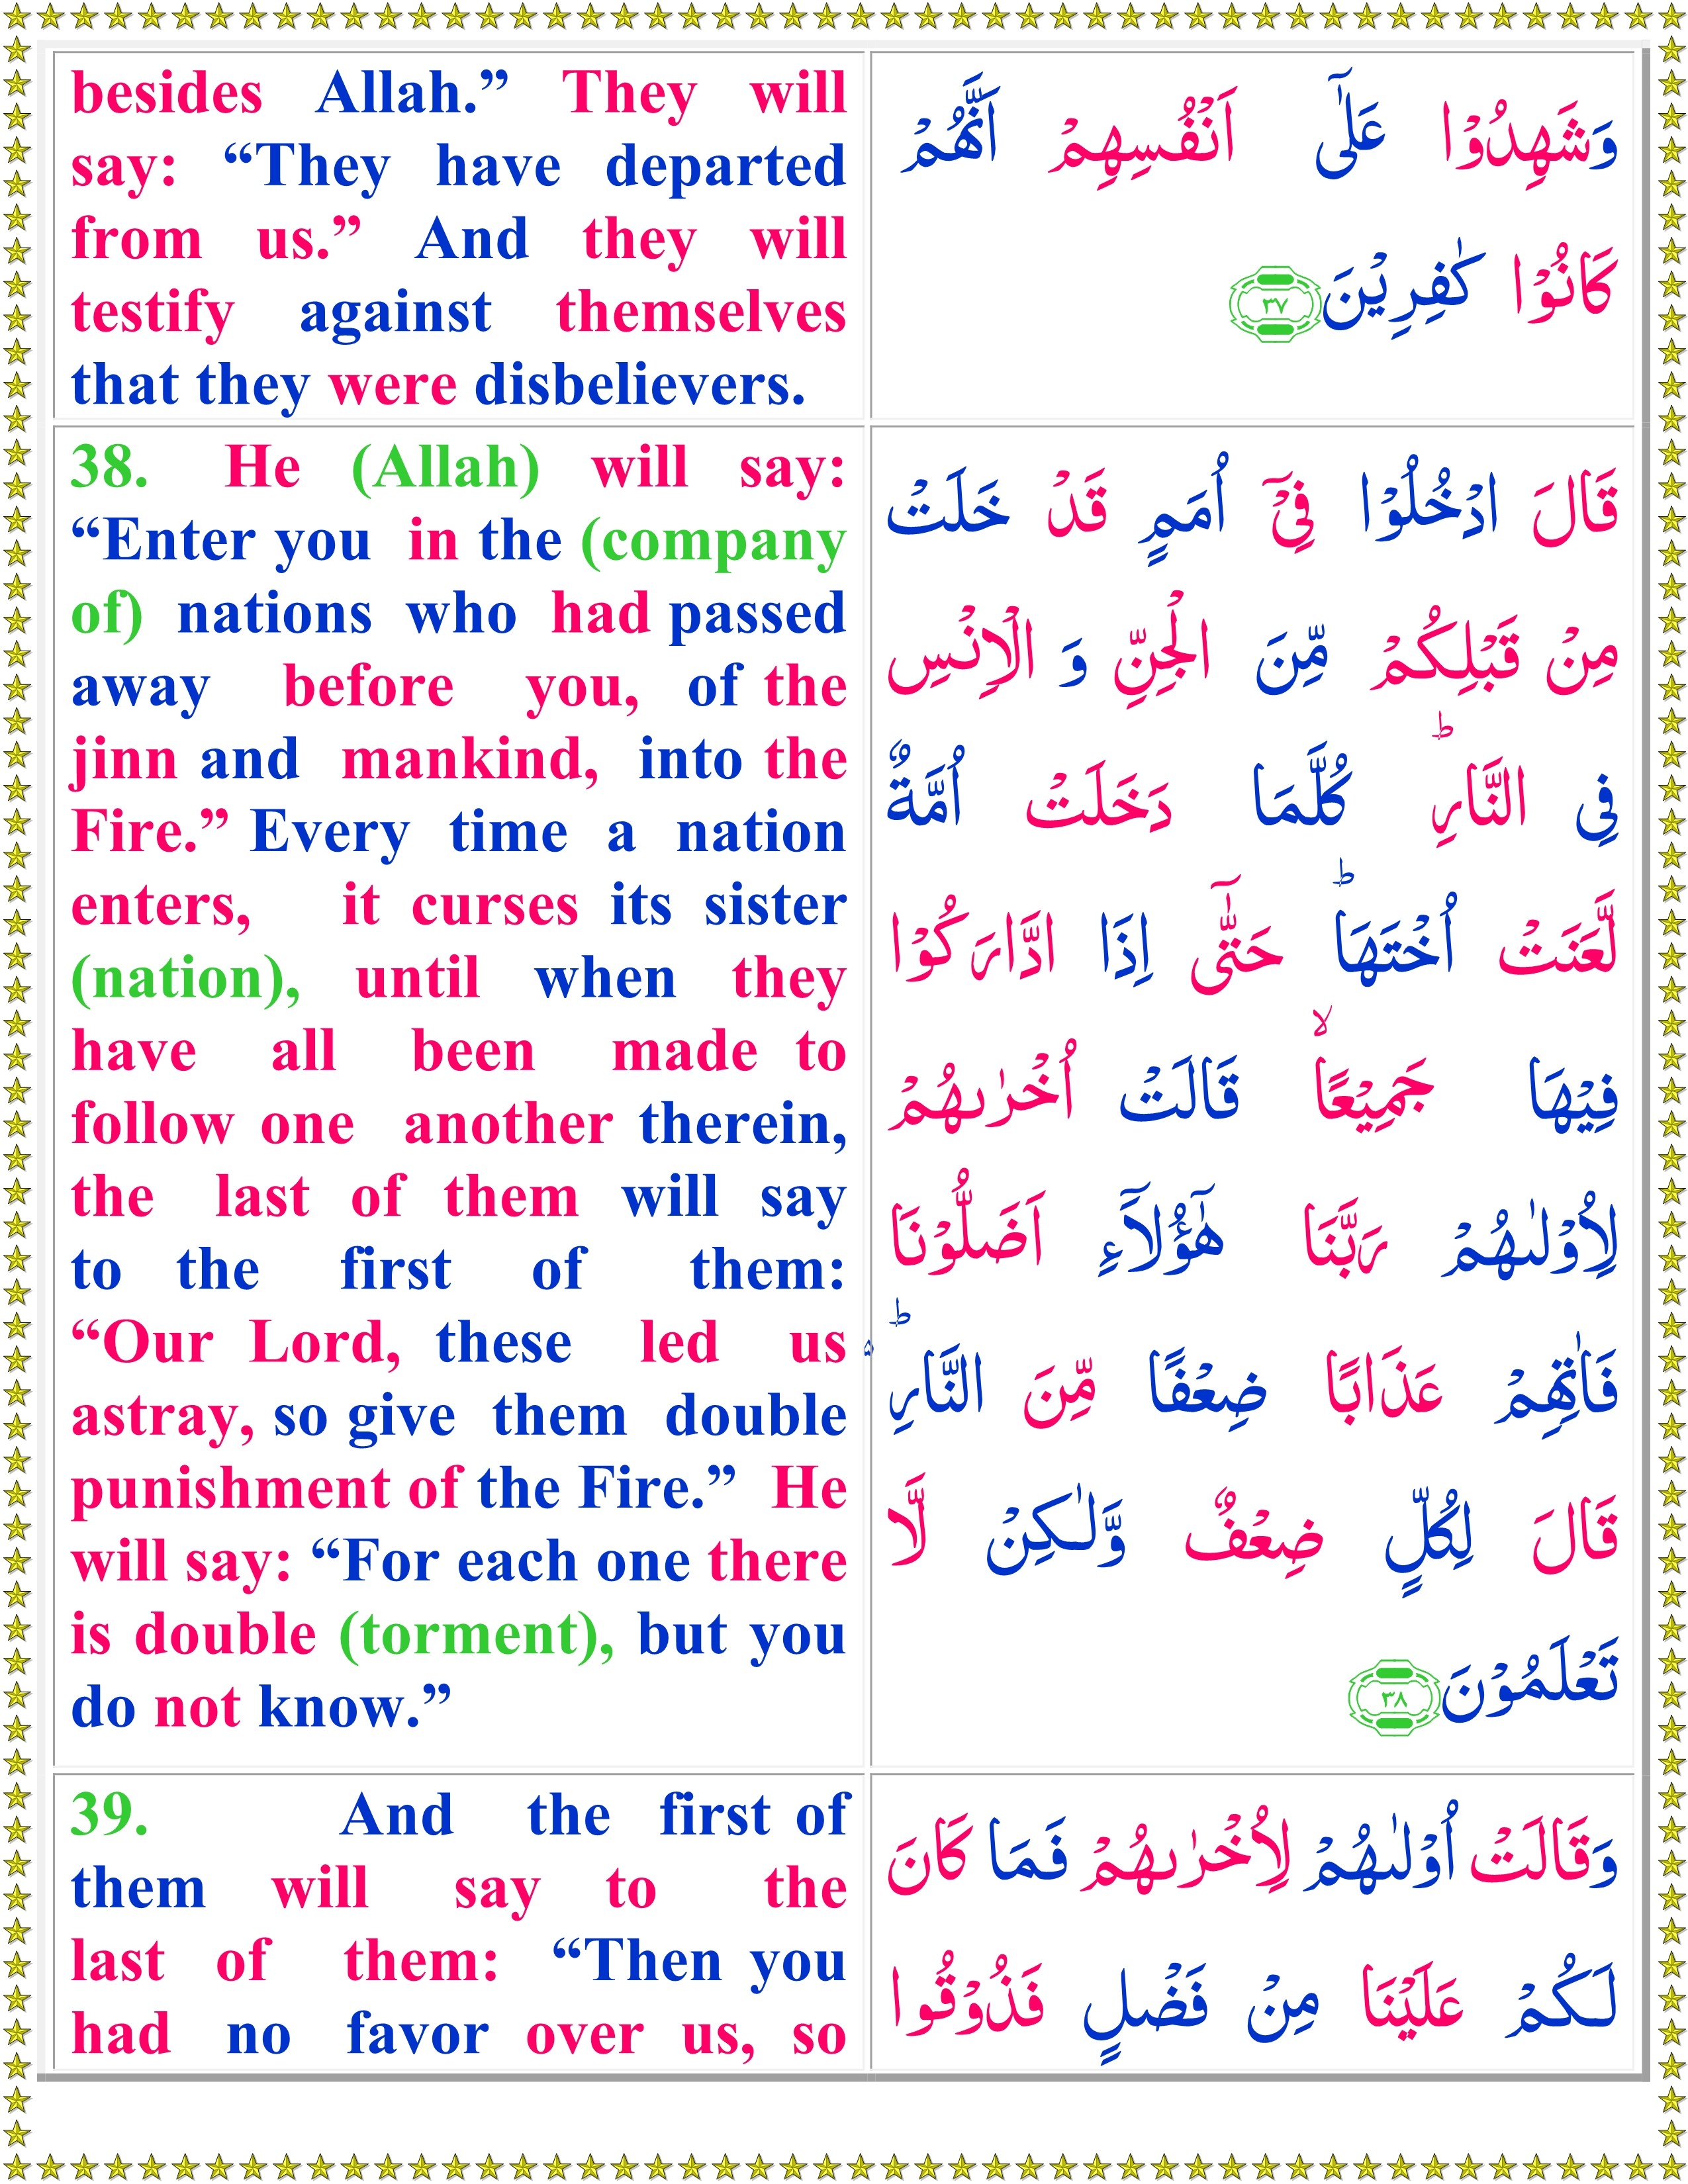 besides Allah.” They will
say: “They have departed
from us.” And they will
testify against themselves
that they were disbelievers.
وَشَهِدُوۡا عَلٰٓى اَنۡفُسِهِمۡ اَنَّهُمۡ
كَانُوۡا كٰفِرِيۡنَ ٣٧
38. He (Allah) will say:
“Enter you in the (company
of) nations who had passed
away before you, of the
jinn and mankind, into the
Fire.” Every time a nation
enters, it curses its sister
(nation), until when they
have all been made to
follow one another therein,
the last of them will say
to the first of them:
“Our Lord, these led us
astray, so give them double
punishment of the Fire.” He
will say: “For each one there
is double (torment), but you
do not know.”
قَالَ ادۡخُلُوۡا فِىۡۤ اُمَمٍ قَدۡ خَلَتۡ
مِنۡ قَبۡلِكُمۡ مِّنَ الۡجِنِّ وَ الۡاِنۡسِ
فِى النَّارِ ؕ كُلَّمَا دَخَلَتۡ اُمَّةٌ
لَّعَنَتۡ اُخۡتَهَا ؕ حَتّٰۤى اِذَا ادَّارَكُوۡا
فِيۡهَا جَمِيۡعًا ۙ قَالَتۡ اُخۡرٰٮهُمۡ
لِاُوۡلٰٮهُمۡ رَبَّنَا هٰٓؤُلَاۤءِ اَضَلُّوۡنَا
فَاٰتِهِمۡ عَذَابًا ضِعۡفًا مِّنَ النَّارِ ؕ
قَالَ لِكُلٍّ ضِعۡفٌ وَّلٰـكِنۡ لَّا
تَعۡلَمُوۡنَ ٣٨
39. And the first of
them will say to the
last of them: “Then you
had no favor over us, so
وَقَالَتۡ اُوۡلٰٮهُمۡ لِاُخۡرٰٮهُمۡ فَمَا كَانَ
لَـكُمۡ عَلَيۡنَا مِنۡ فَضۡلٍ فَذُوۡقُوا